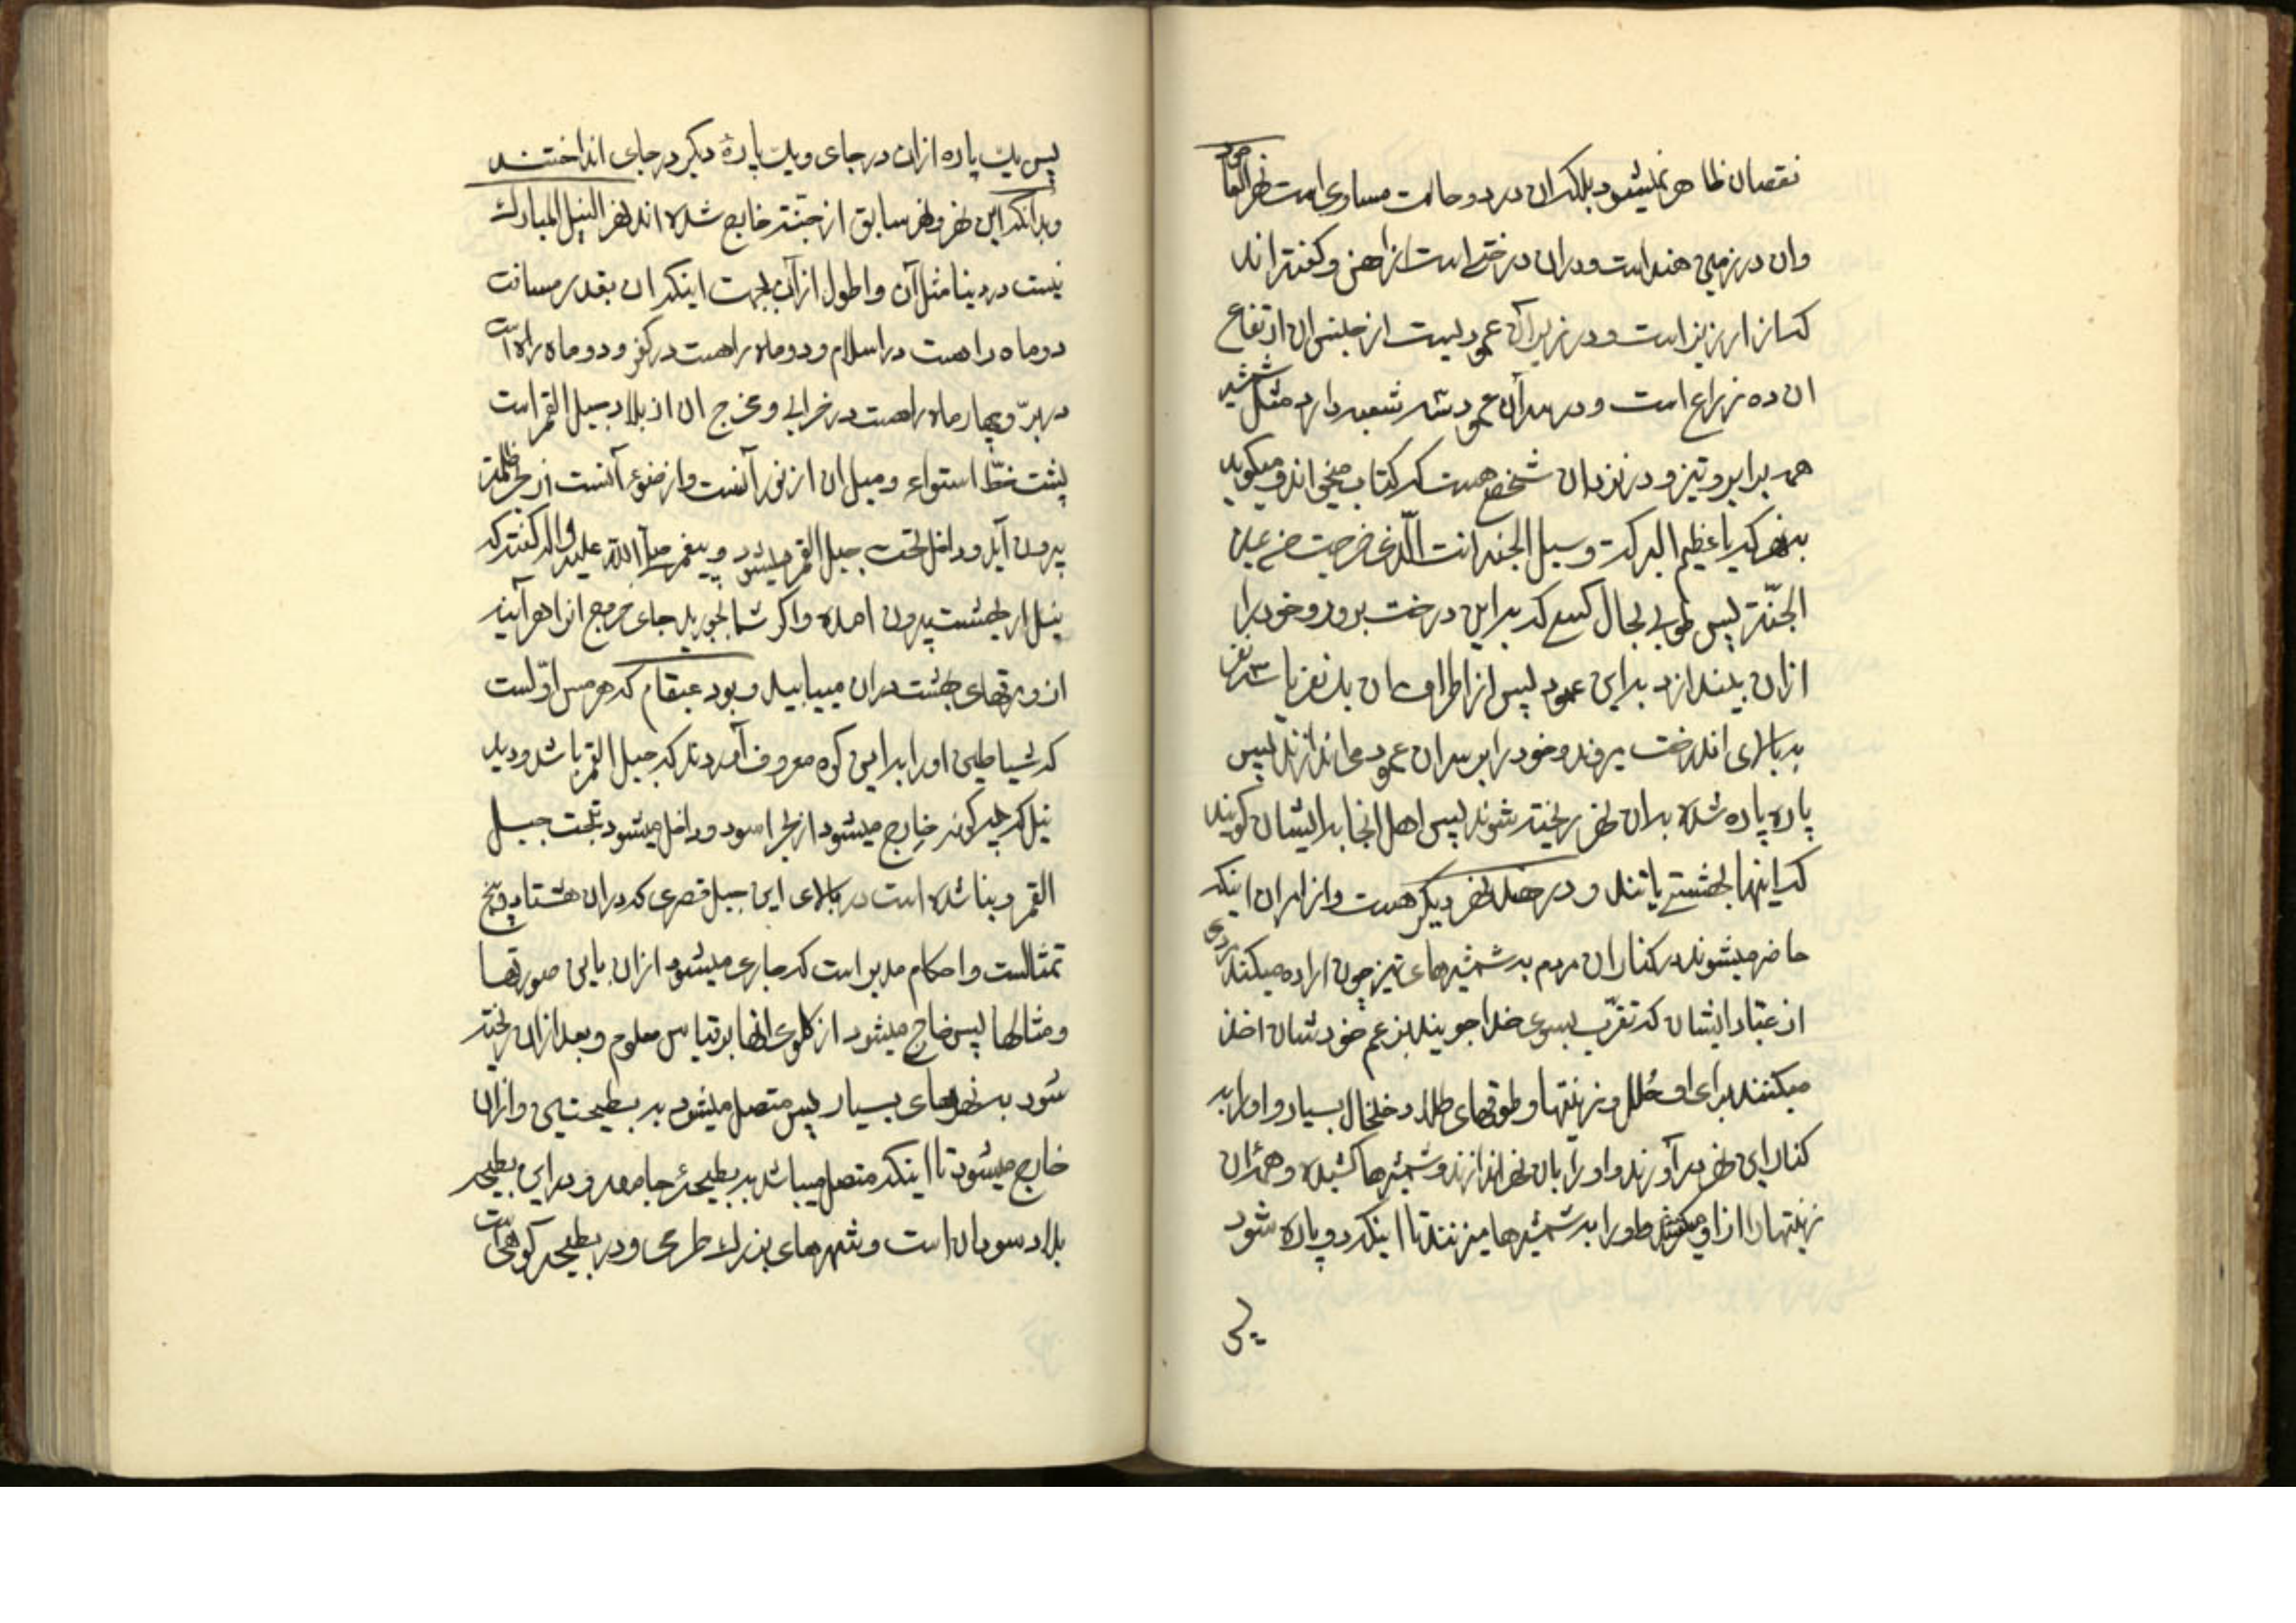 نقصان ظاهر نمیشود بلکه ان در دو حالت مساوی است نهر العامود
وان در زمین هند است و در ان درختی است از اهن و کفته اند
که از ارزیز است و در زیر آن عمودیست از جنس ان ارتفاع
ان ده زراع است و در سر آن عمود سه شعبه دارد مثل شمشیر
همه برابر و تیز و در نزد ان شخصی هست که کتاب میخواند و میکوید
بنهر که یا عظیم البرکت و سبیل الجنه انت الّذی خرجت من عین
الجنّة پس طوبی بحال کسی که بر این درخت برود و خود را
ازان بیندازد بر این عمود پس از اطراف ان یک نفر یا سه نفر
به بالای اندرخت میروند و خود را بر سر ان عمود می اندازند پس
پاره پاره شده بدان نهر ریخته شوند پس اهل انجا بر ایشان کویند
که اینها بهشتی یافتند و در هند نهر دیکر هست و از امر ان اینکه
حاضر میشوند در کنار ان مردم به شمشیرهای تیز چون اراده میکند مردی
از عبّاد ایشان که تقرّب بسوی خدا جویند بزعم خودشان اخذ
میکنند برای او حُلل و زینتها و طوقهای طلا و خلخال بسیار و او را به
کنار این نهر بر آورند و او را بان نهر اندازند و شمشیرها کشیده و همهٔ ان
زینتها را از او میکیرند و او را به شمشیرها میزنند تا اینکه دو پاره شود
پس
پس یک پاره ازان در جای و یک پارهٔ دیکر در جای انداختند
و بدانکه این نهر و نهر سابق از جنّت خارج شده اند نهر النیل المبارک
نیست در دینا مثل آن و اطول از آن بجهت اینکه ان بقدر مسافت
دو ماه راهست در اسلام و دو ماه راهست در کفر و دو ماه راه است
در برّ و چهار ماه راهست در خرابی و مخرج ان از بلاد جبل القمر است
پشت خطّ استواء و میل ان از نور آنست و از ضوء آنست از بحر ظلمة
بیرون آید و داخل تحت جبل القمر میشود و پیغمبر صلی اللّه علیه و آله کفته که
نیل از بهشت بیرون امده و اکر شما بجوید جای خروج انرا هر آینه
از ورقهای بهشت در ان مییابید و بود عبقام که هرمس اوّلست
که شیاطین او را بر این کوه معروف آوردند که جبل القمر باشد و دید
نیل که چکونه خارج میشود از بحر اسود و داخل میشود بتحت جبل
القمر و بنا شده است در بالای این جبل قصری که در ان هشتاد و پنج
تمثالست و احکام مدبر است که جاری میشود ازان باین صورتها
و مثالها پس خارج میشود از کلوی انها بر قیاس معلوم و بعد ازان ریخته
شود به نهرهای بسیار پس متصل میشود به بطیحتین و ازان
خارج میشود تا اینکه متصل میباشد به بطیحهٔ جامعه و در این بطیحه
بلاد سودان است و شهرهای بزرک طرمی و در بطیحه کوهی است